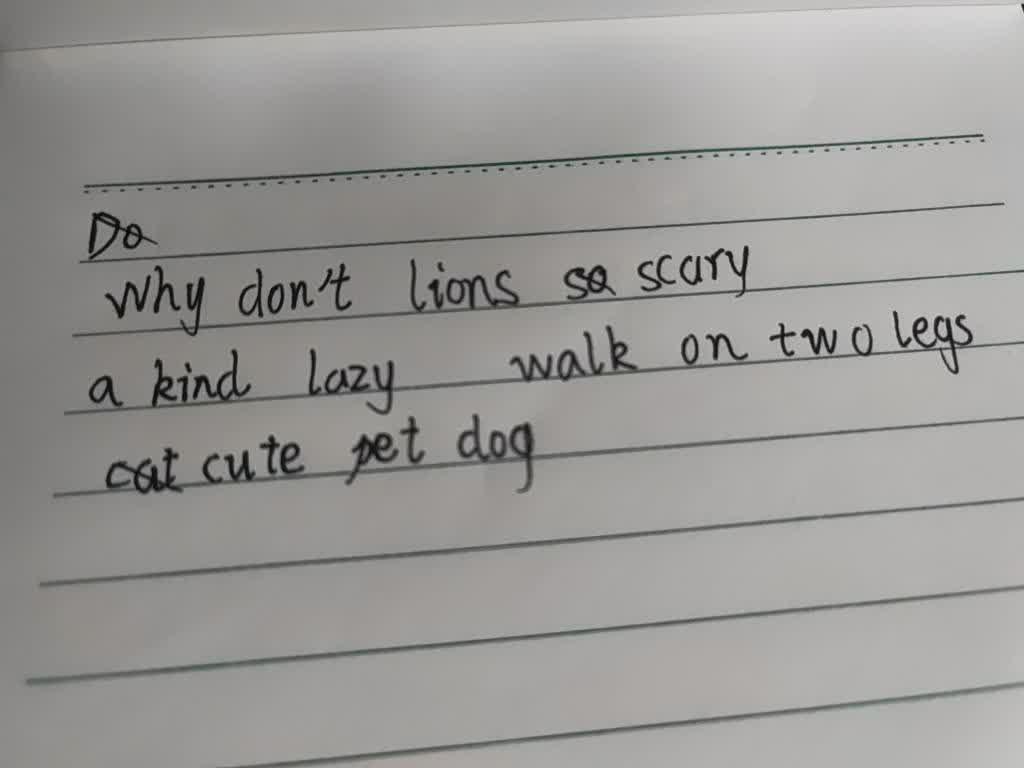 Do
Why don't lions so scary
a kind lazy walk on two legs
cat cute pet dog